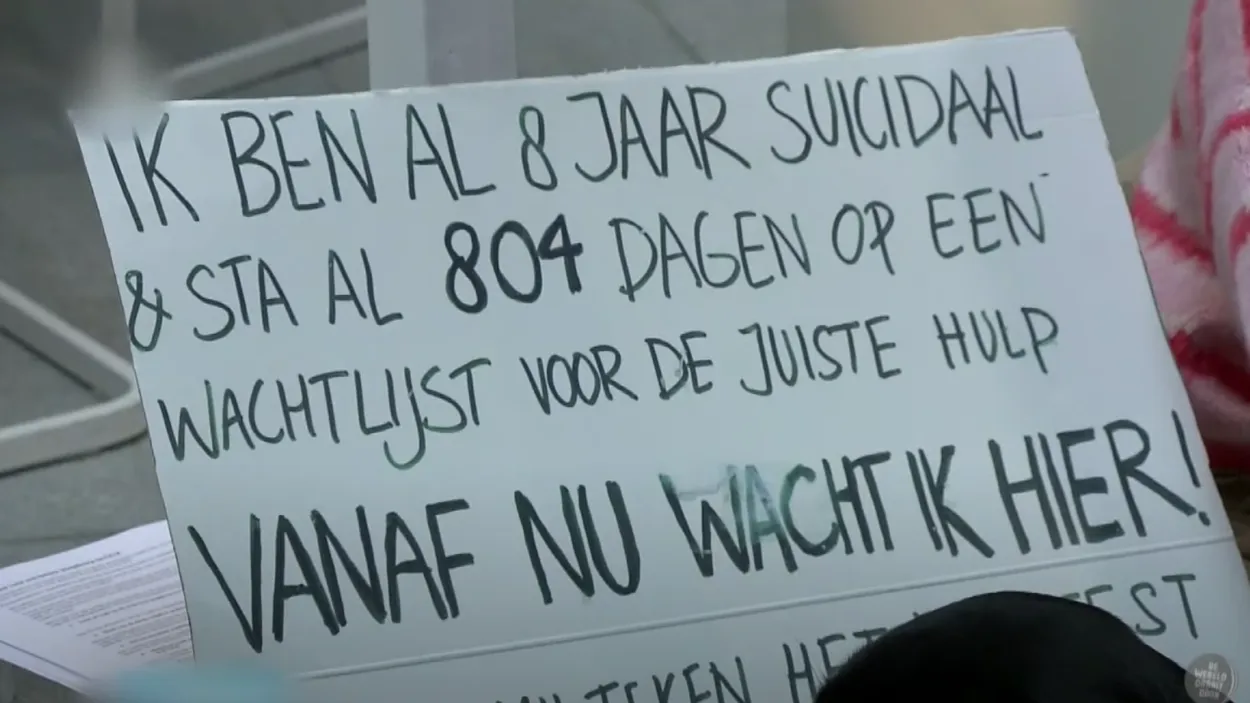 IK BEN AL 8 JAAR SUICIDAAL
& STA AL 804 DAGEN OP EEN
WACHTLIJST VOOR DE JUISTE HULP
VANAF NU WACHT IK HIER!
TEKEN HET
DE WERELD DRAAIT DOOR